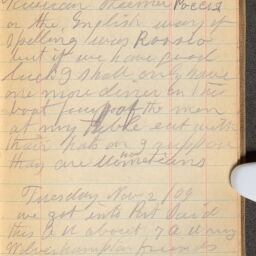 Russian Steamer РОССІЯ
or the English way of
spelling was Rossio
but if we have good
luck I shall only have
one more dinner on this
boat four of the men
at my table eat with
their hats on I suppose
they are Mometians
Tuesday Nov 2/09
we got into Port Said
this a m about 7 a m my
Wolverhampton friends